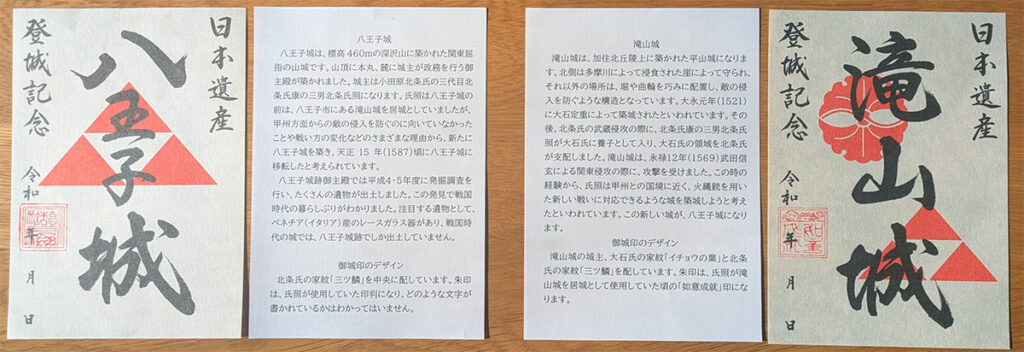 日本遺産
八王子城
登城記念
令和
年
月
日
八王子城
八王子城は、標高460mの深沢山に築かれた関東屈
指の山城です。山頂に本丸、麓に城主が政務を行う御
主殿が築かれました。城主は小田原北条氏の三代目北
条氏康の三男北条氏照になります。氏照は八王子城の
前は、八王子市にある滝山城を居城としていましたが、
甲州方面からの敵の侵入を防ぐのに向いていなかった
ことや戦い方の変化などのさまざまな理由から、新たに
八王子城を築き、天正 15 年(1587)頃に八王子城に
移転したと考えられています。
八王子城跡御主殿では平成4・5年度に発掘調査を
行い、たくさんの遺物が出土しました。この発見で戦国
時代の暮らしぶりがわかりました。注目する遺物として、
ベネチア(イタリア)産のレースガラス器があり、戦国時
代の城では、八王子城跡でしか出土していません。
御城印のデザイン
北条氏の家紋「三ツ鱗」を中央に配しています。朱印
は、氏照が使用していた印判になり、どのような文字が
書かれているかはわかってはいません。
滝山城
滝山城は、加住北丘陵上に築かれた平山城になりま
す。北側は多摩川によって浸食された崖によって守られ、
それ以外の場所は、堀や曲輪を巧みに配置し、敵の侵
入を防ぐような構造となっています。大永元年(1521)
に大石定重によって築城されたといわれています。その
後、北条氏の武蔵侵攻の際に、北条氏康の三男北条氏
照が大石氏に養子として入り、大石氏の領域を北条氏
が支配しました。滝山城は、永禄12年(1569)武田信
玄による関東侵攻の際に、攻撃を受けました。この時の
経験から、氏照は甲州との国境に近く、火縄銃を用い
た新しい戦いに対応できるような城を築城しようと考え
たといわれています。この新しい城が、八王子城になり
ます。
御城印のデザイン
滝山城の城主、大石氏の家紋「イチョウの葉」と北条
氏の家紋「三ツ鱗」を配しています。朱印は、氏照が滝
山城を居城として使用していた頃の「如意成就」印にな
ります。
日本遺産
滝山城
登城記念
令和
年
月
日